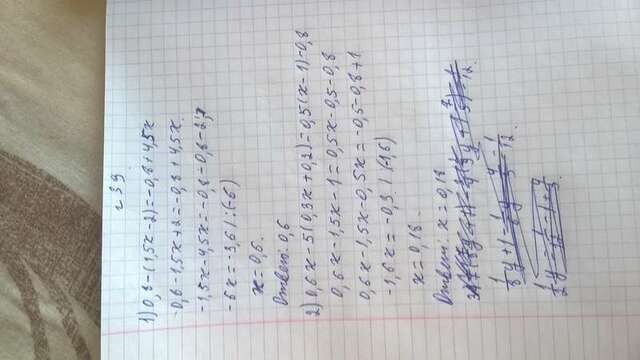 № 39.
1) 0,8-(1,5x-2)=-0,8+4,5x
0,8-1,5x+2=-0,8+4,5x
-1,5x-4,5x=-0,8-0,8-2;
-6x=-3,6 /:(-6)
x=0,6.
Ответ: 0,6
2) 0,6x-5(0,3x+0,2)=0,5(x-1)-0,8
0,6x-1,5x-1=0,5x-0,5-0,8
0,6x-1,5x-0,5x=-0,5-0,8+1
-1,6x=-0,3 / (-1,6)
x=0,18
Ответ: x=0,18